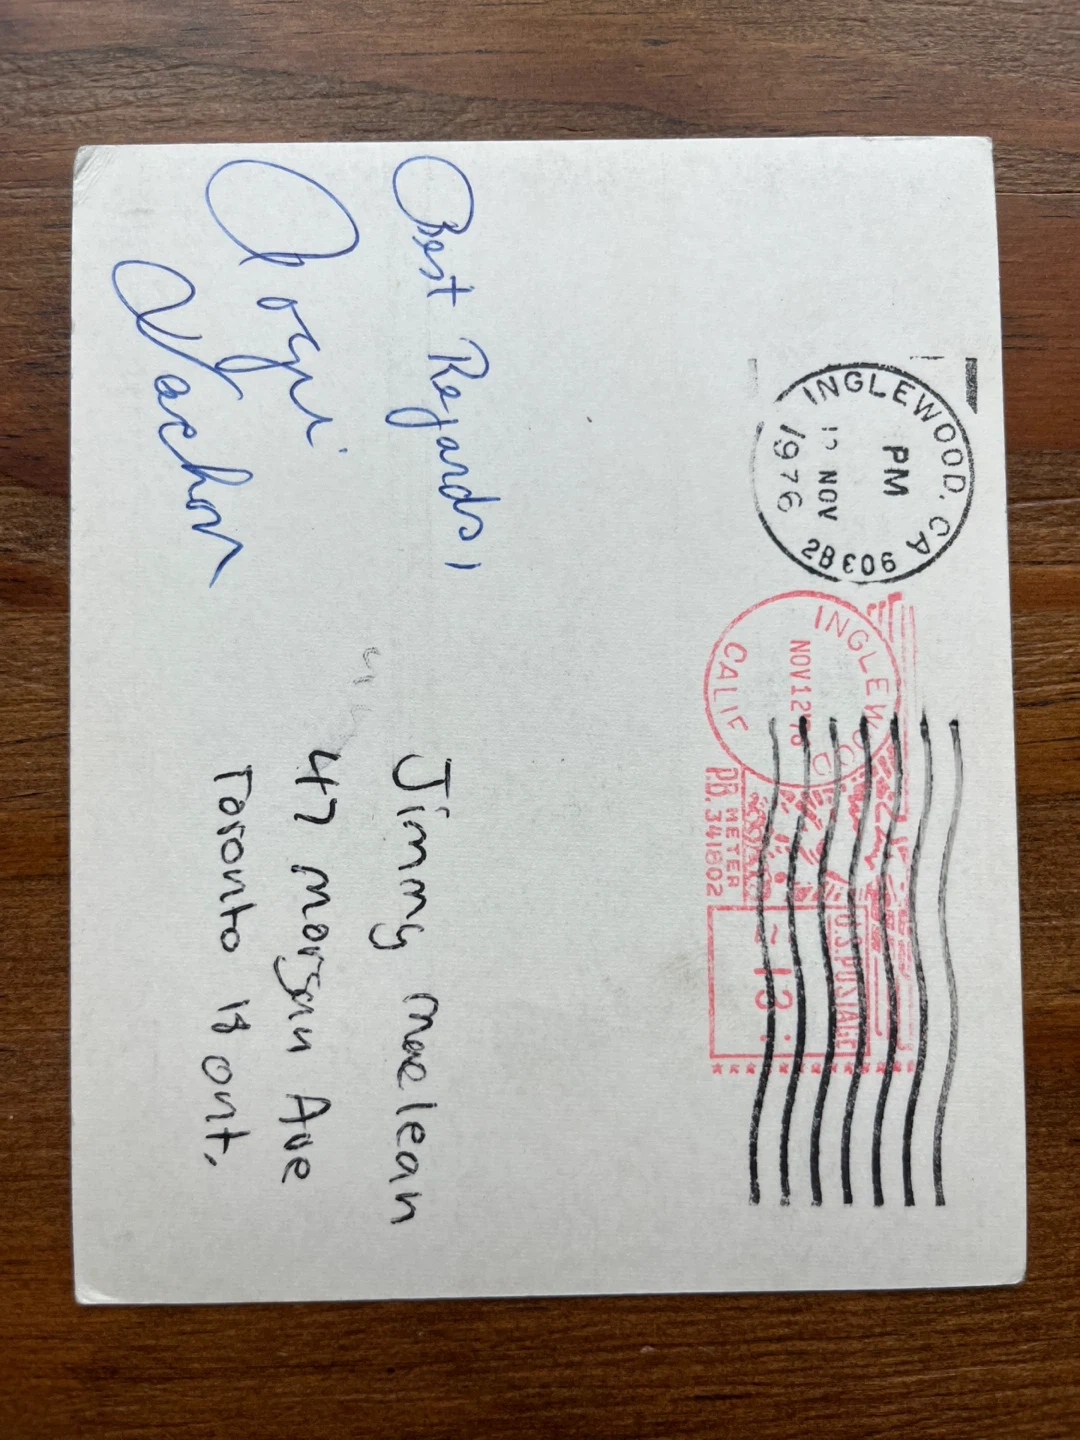 INGLEWOOD, CA
PM
12 NOV
1976
INGLEWOOD
NOV 12 '76
CALIF
P.B. METER
P.B. 341802
U.S. POSTAGE
13
Best Regards,
Rogi
Vachon
Jimmy maelean
47 morgan Ave
Toronto 18 ont.